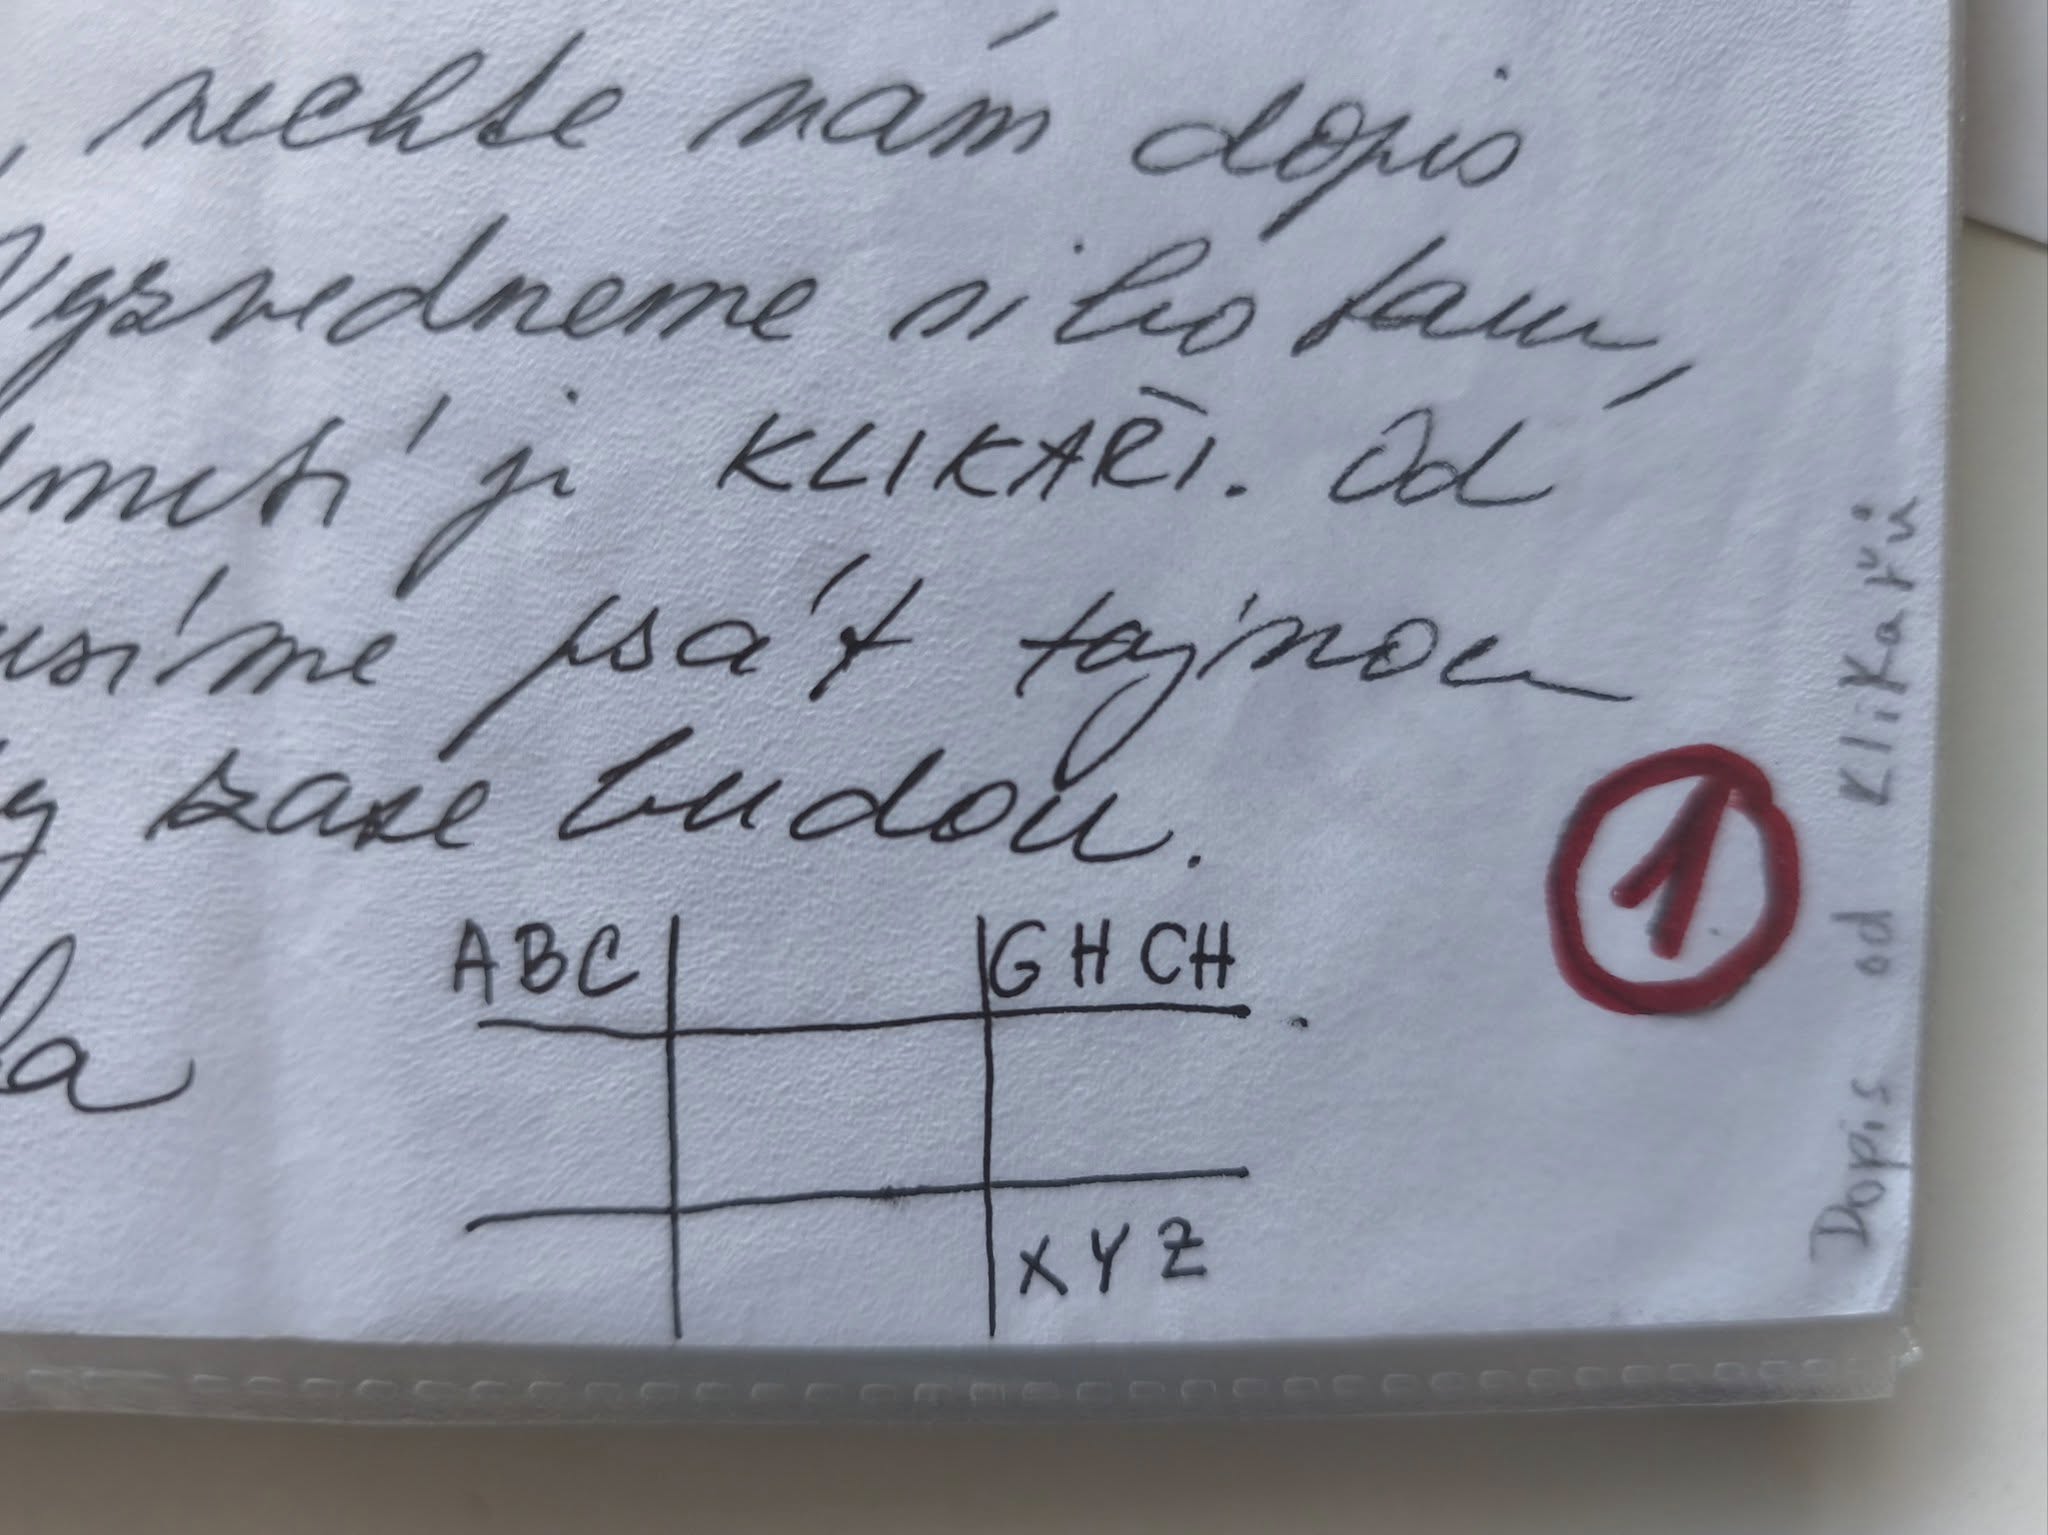 , nechte nám dopis
Vyzvedneme si ho tam,
ji KLIKAŘI. Od
usíme psát tajnou
zase budou.
ABC GH CH
XYZ
1
Dopis od klikařů